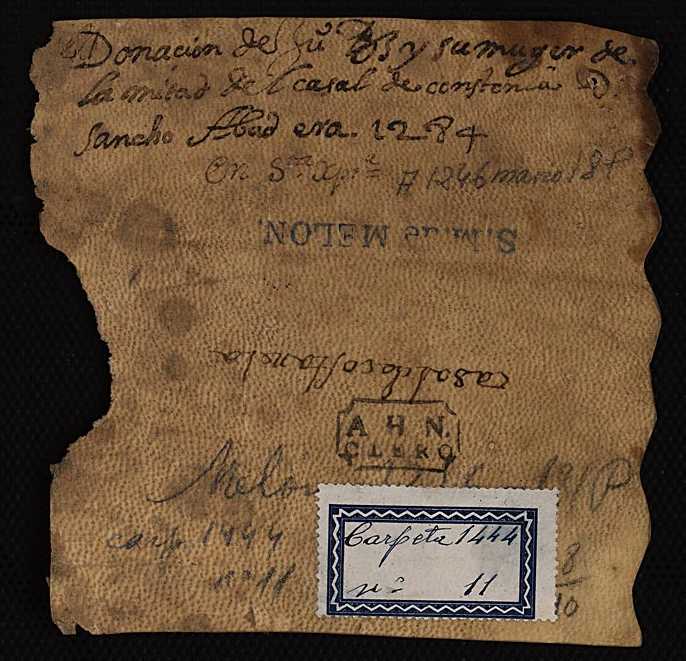 Donacion de Ju y su muger de
la mitad del casal de constenla D.
sancho Abad era 1284
En S.ta Xp.na A 1246 marzo 18 P
S. M. de MELON.
casal da costanela
A H N.
CLERO
Melón
carp. 1444
nº 11
Carpeta 1444
nº 11
8
10